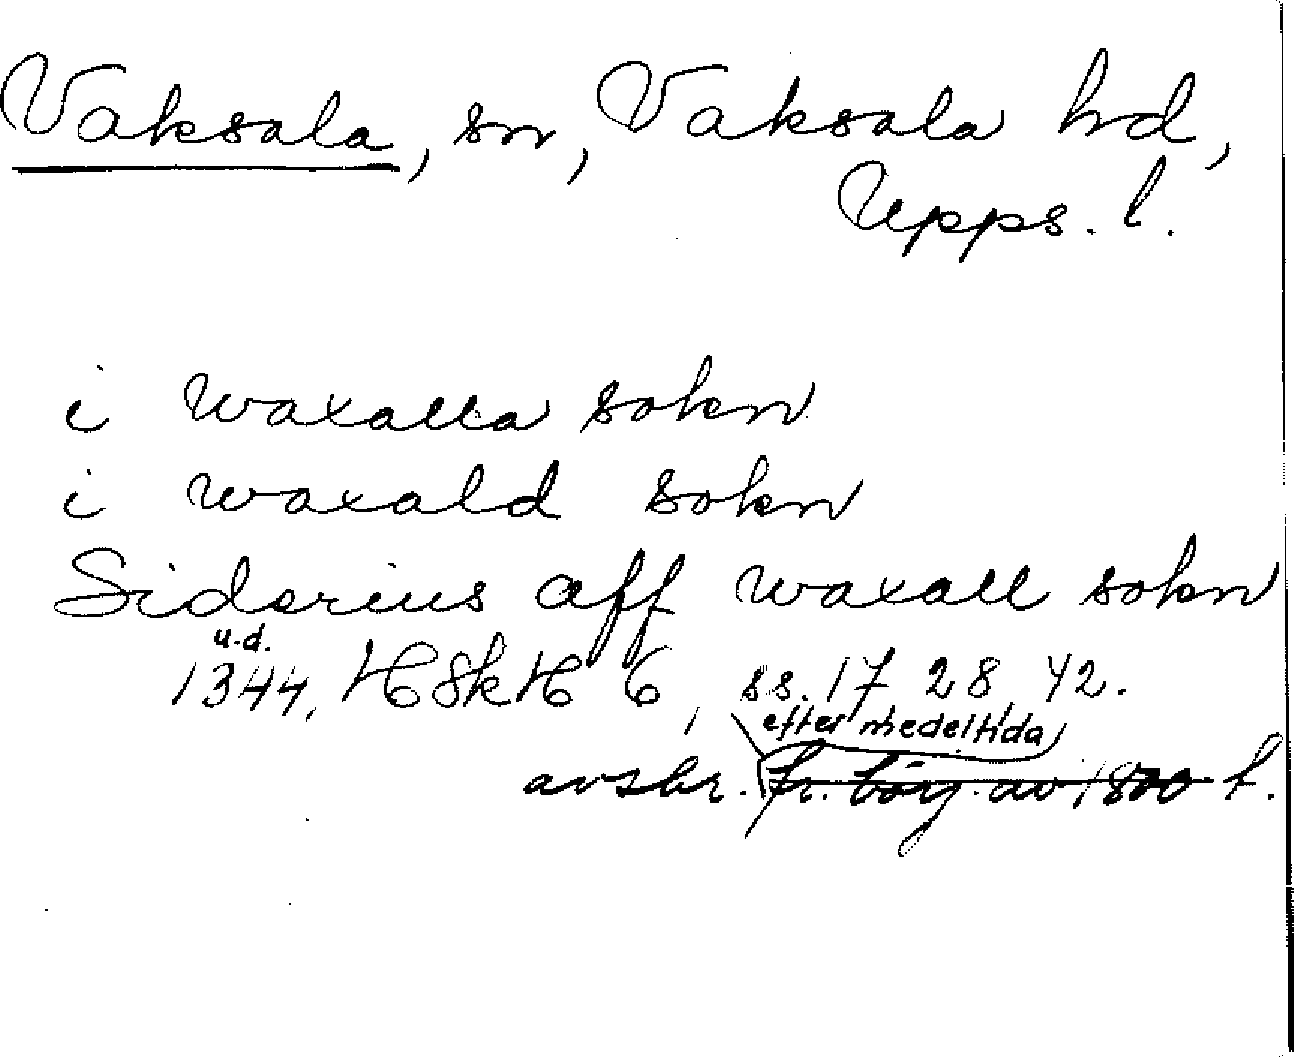 Vaksala, sn, Vaksala hd,
Upps. l.
i waxalla sokn
i waxald sokn
Siderius aff waxall sokn
u.d.
1344, HSkH 6, ss. 17, 28, 42.
efter medeltida
avskr. fr. börj. av 1800 t.